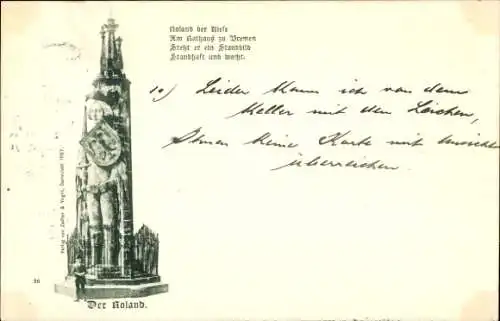 Roland der Riese
Am Rathaus zu Bremen
Steht er ein Standbild
Standhaft und wacht.
10) Leider kann ich von dem
Keller mit den Leichen,
Ihnen keine Karte mit Ansicht
überreichen.
36
Der Roland.